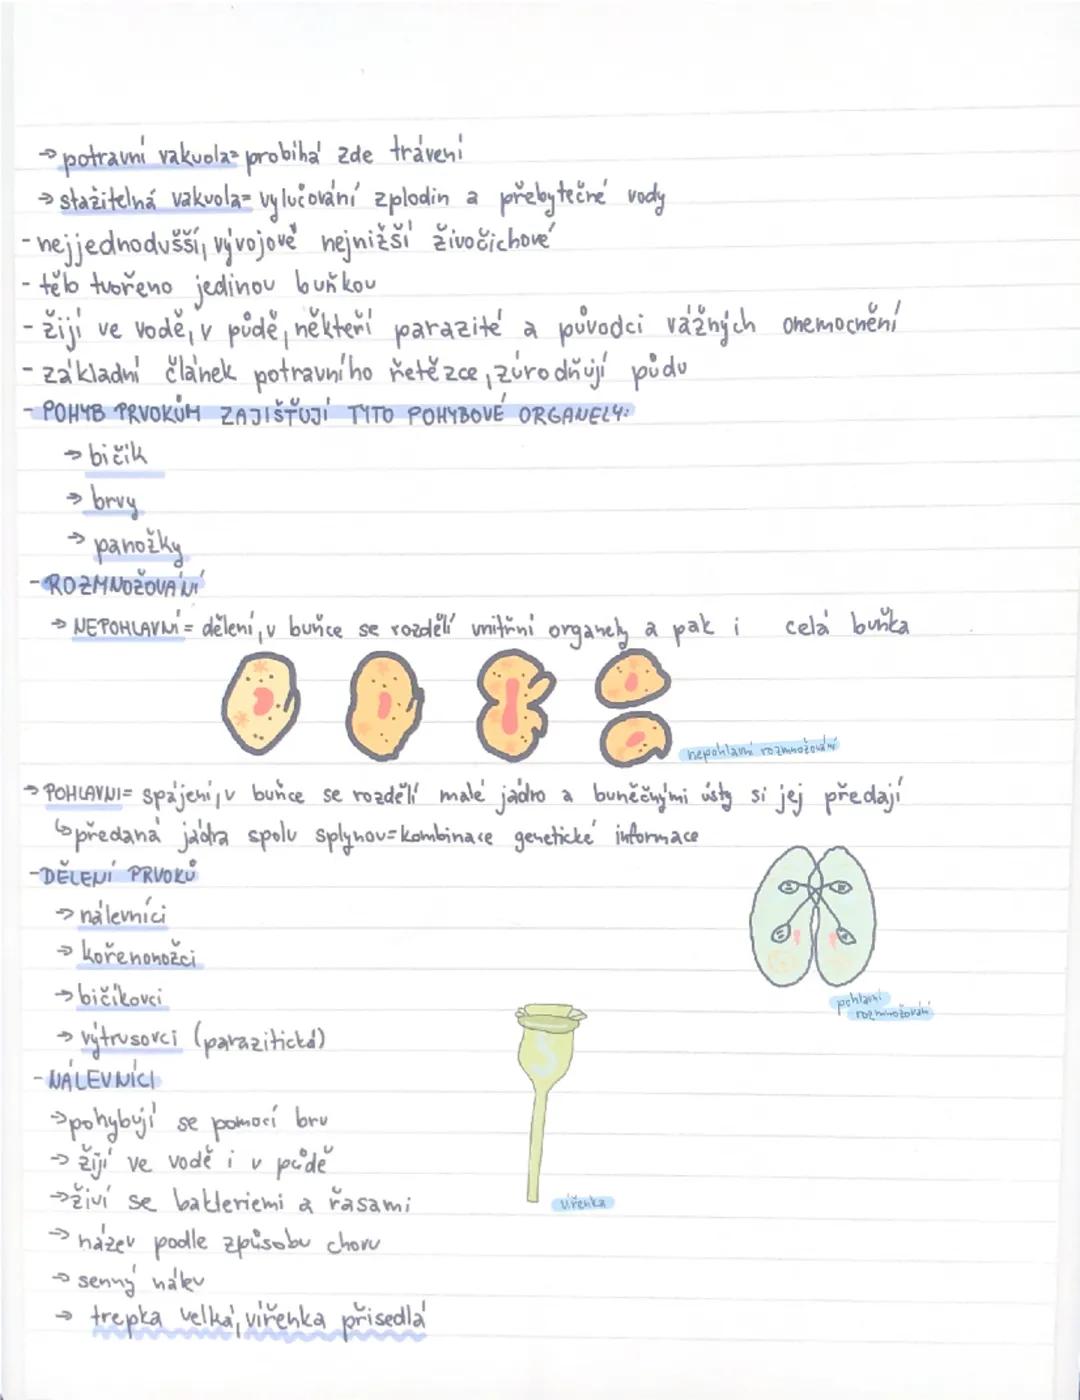 → potravní vakuola= probíhá zde trávení
→ stažitelná vakuola= vylučování zplodin a přebytečné vody
- nejjednodušší, vývojově nejnižší živočichové
- tělo tvořeno jedinou buňkou
- žijí ve vodě, v půdě, někteří parazité a původci vážných onemocnění
- základní článek potravního řetězce, zúrodňují půdu
- POHYB PRVOKŮM ZAJIŠŤUJÍ TYTO POHYBOVÉ ORGANELY:
→ bičík
→ brvy
→ panožky
- ROZMNOŽOVÁNÍ
→ NEPOHLAVNÍ= dělení, v buňce se rozdělí vnitřní organely a pak i celá buňka
nepohlavní rozmnožování
→ POHLAVNÍ= spájení, v buňce se rozdělí malé jádro a buněčnými ústy si jej předají
↳ předaná jádra spolu splynou= kombinace genetické informace
- DĚLENÍ PRVOKŮ
→ nálevníci
→ kořenonožci
→ bičíkovci
pohlavní
rozmnožování
→ výtrusovci (parazitická)
- NÁLEVNÍCI
→ pohybují se pomocí brv
→ žijí ve vodě i v půdě
→ živí se bakteriemi a řasami
vířenka
→ název podle způsobu chovu
→ senný nálev
→ trepka velká, vířenka přisedlá